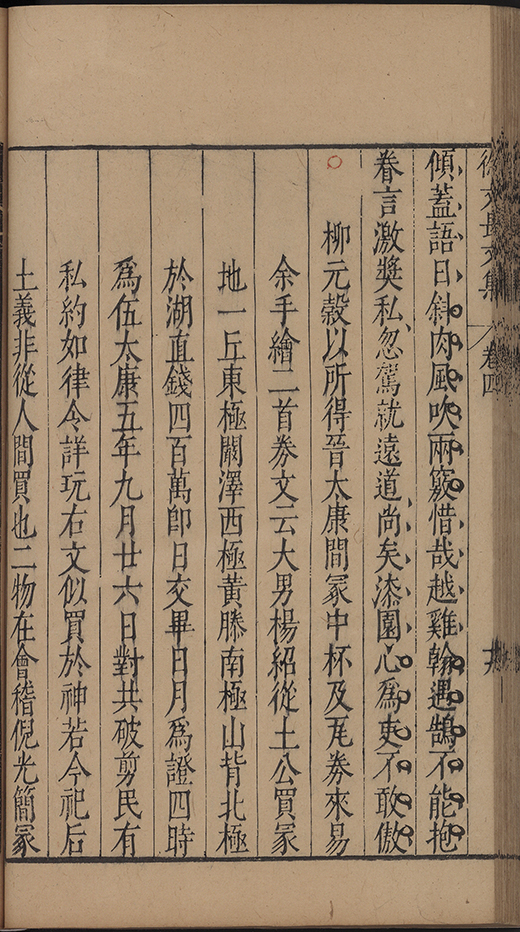 徐文長文集 卷四
傾蓋語日斜肉風吹兩竅惜哉越雞翰遇鵠不能抱
眷言激獎私忽駕就遠道尚矣漆園心爲吏不敢傲
柳元穀以所得晉太康間冢中杯及瓦券來易
余手繪二首券文云大男楊紹從土公買冢
地一丘東極闞澤西極黃滕南極山背北極
於湖直錢四百萬卽日交畢日月爲證四時
爲伍太康五年九月廿六日對共破剪民有
私約如律令詳玩右文似買於神若今祀后
土義非從人間買也二物在會稽倪光簡冢